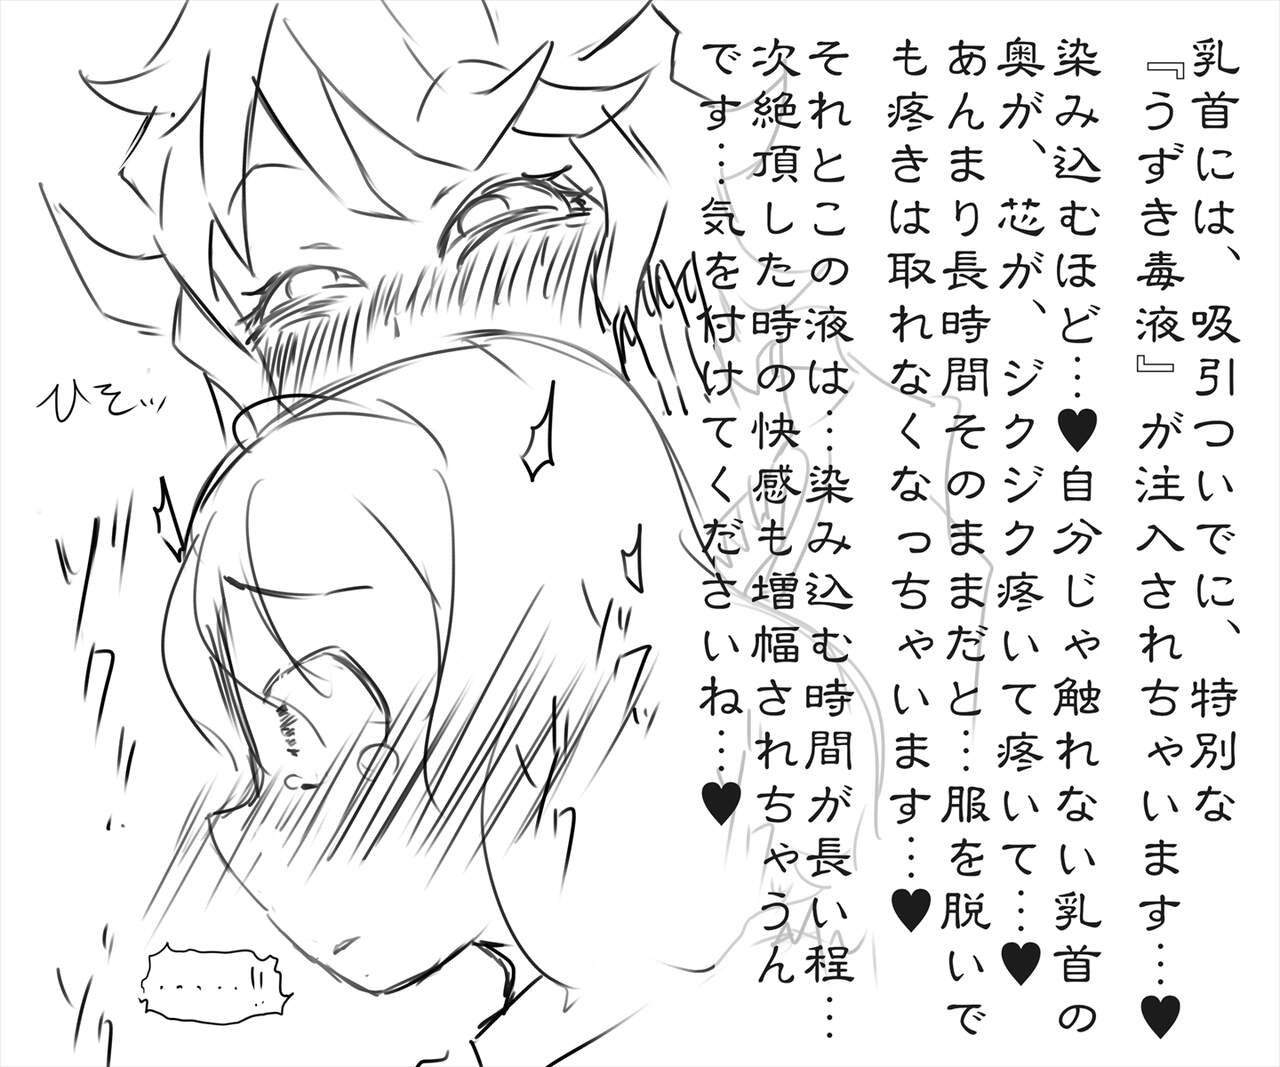 乳首には、吸引ついでに、特別な
『うずき毒液』が注入されちゃいます…♥
染み込むほど…♥自分じゃ触れない乳首の
奥が、芯が、ジクジク疼いて疼いて…♥
あんまり長時間そのままだと…服を脱いで
も疼きは取れなくなっちゃいます…♥
それとこの液は…染み込む時間が長い程…
次絶頂した時の快感も増幅されちゃうん
です…気を付けてくださいね…♥
ひそッ
……!!